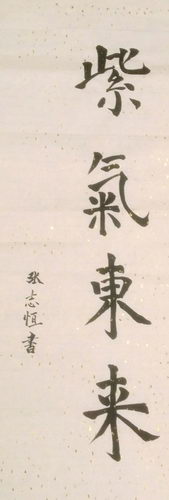 紫氣東来
张志恒書